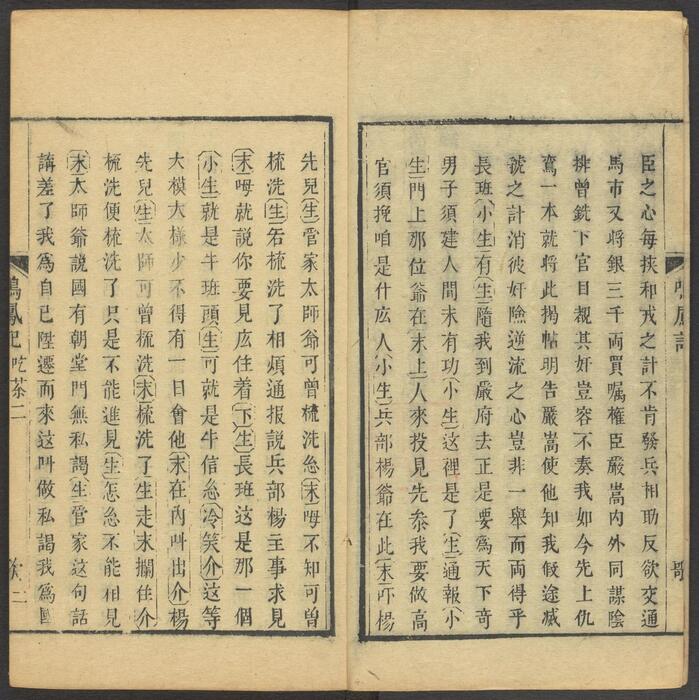 臣之心每挾和戎之計不肯發兵相助反欲交通
馬市又將銀三千両買嘱權臣嚴嵩内外同謀陰
排曾銑下官目覩其奸豈容不奏我如今先上仇
鸞一本就將此揭帖明告嚴嵩使他知我假途滅
虢之計消彼奸險逆流之心豈非一舉而両得乎
長班小生有生隨我到嚴府去正是要爲天下奇
男子須建人間未有功小生这裡是了生通報小
生門上那位爺在末上人來投見先叅我要做高
官須挽咱是什庅人小生兵部楊爺在此末吓楊
先兒生管家太師爺可曾梳洗怂末㕶不知可曾
梳洗生若梳洗了相煩通报說兵部楊主事求見
末㕶就說你要見庅住着下生長班这是那一個
小生就是牛班頭生可就是牛信怂冷笑介这等
大模大様少不得有一日會他末在內呌出介楊
先兒生太师可曾梳洗末梳洗了生走末攔住介
梳洗便梳洗了只是不能進見生怎怂不能相見
末太師爺說國有朝堂門無私謁生管家这句話
講差了我爲自已陞遷而來这呌做私謁我爲國
鳴鳳記
吃茶二